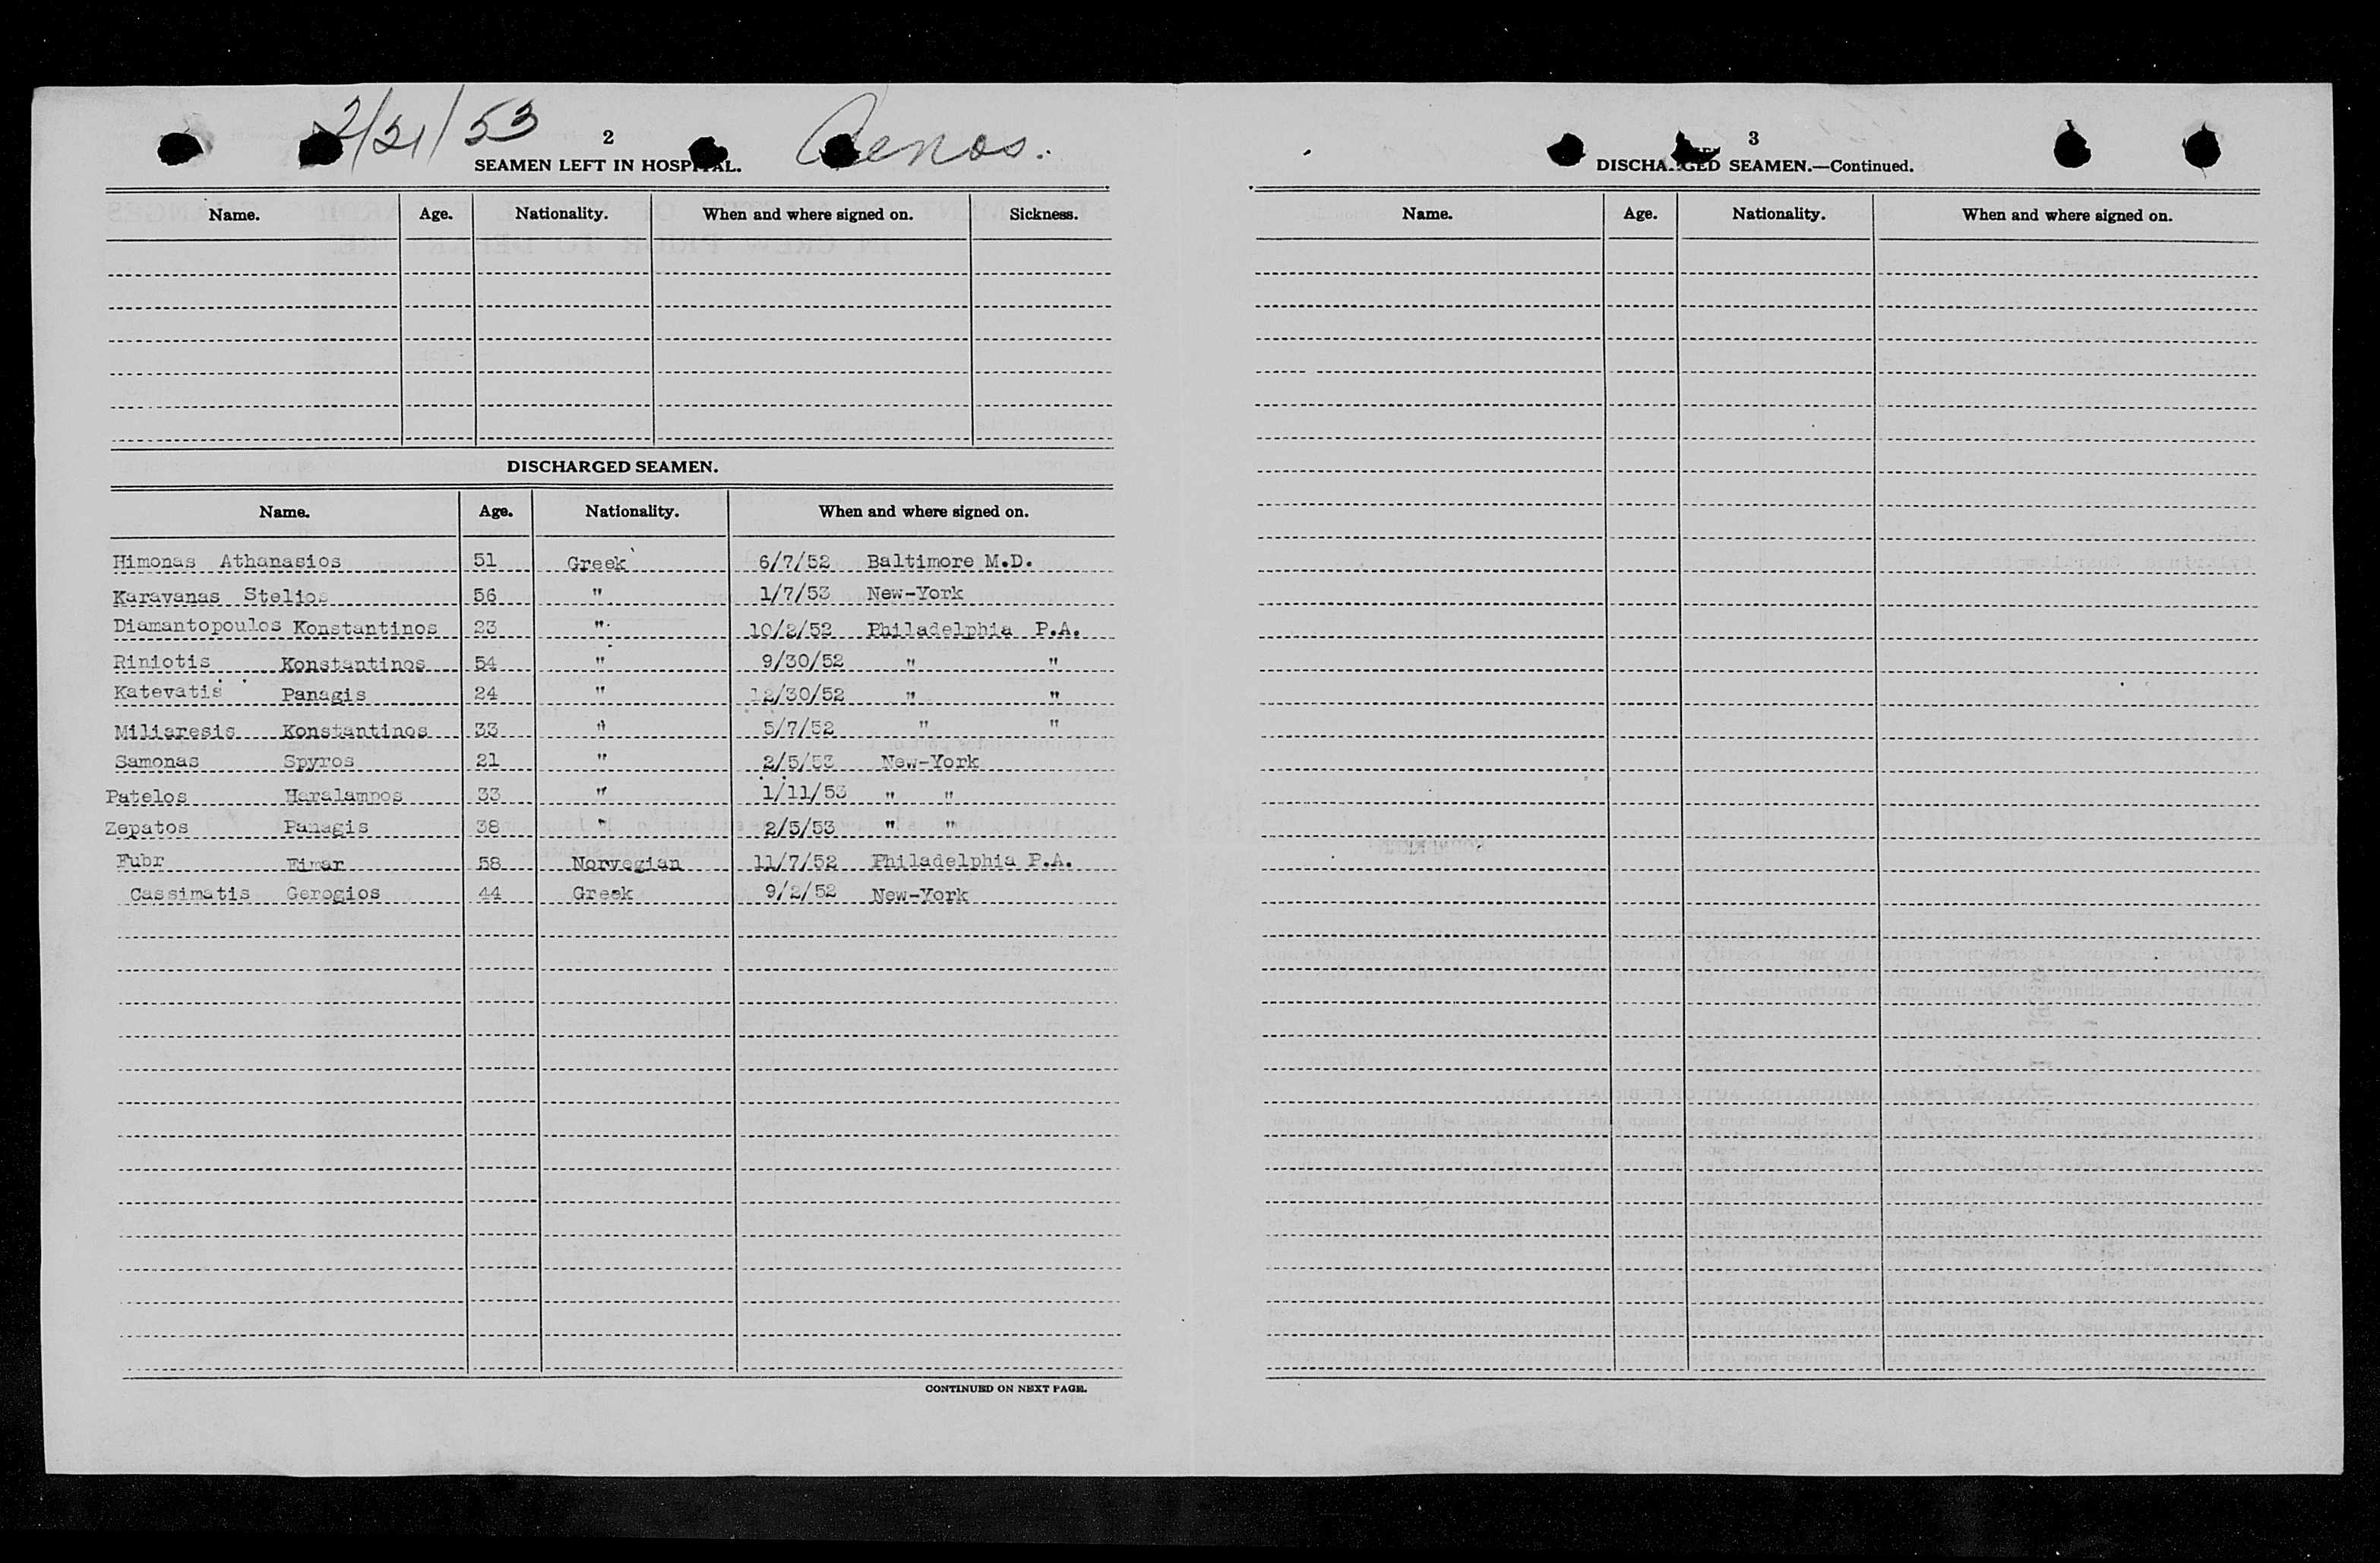 2/21/53
Aenos.
2
SEAMEN LEFT IN HOSPITAL.
Name. Age. Nationality. When and where signed on. Sickness.
DISCHARGED SEAMEN.
Name. Age. Nationality. When and where signed on.
Himonas Athanasios 51 Greek 6/7/52 Baltimore M.D.
Karavanas Stelios 56 " 1/7/53 New-York
Diamantopoulos Konstantinos 23 " 10/2/52 Philadelphia P.A.
Riniotis Konstantinos 54 " 9/30/52 " "
Katevatis Panagis 24 " 12/30/52 " "
Miliaresis Konstantinos 33 " 5/7/52 " "
Samonas Spyros 21 " 2/5/53 New-York
Patelos Haralampos 33 " 1/11/53 " "
Zepatos Panagis 38 " 2/5/53 " "
Fubr Eimar 58 Norvegian 11/7/52 Philadelphia P.A.
Cassimatis Gerogios 44 Greek 9/2/52 New-York
CONTINUED ON NEXT PAGE.
3
DISCHARGED SEAMEN.—Continued.
Name. Age. Nationality. When and where signed on.